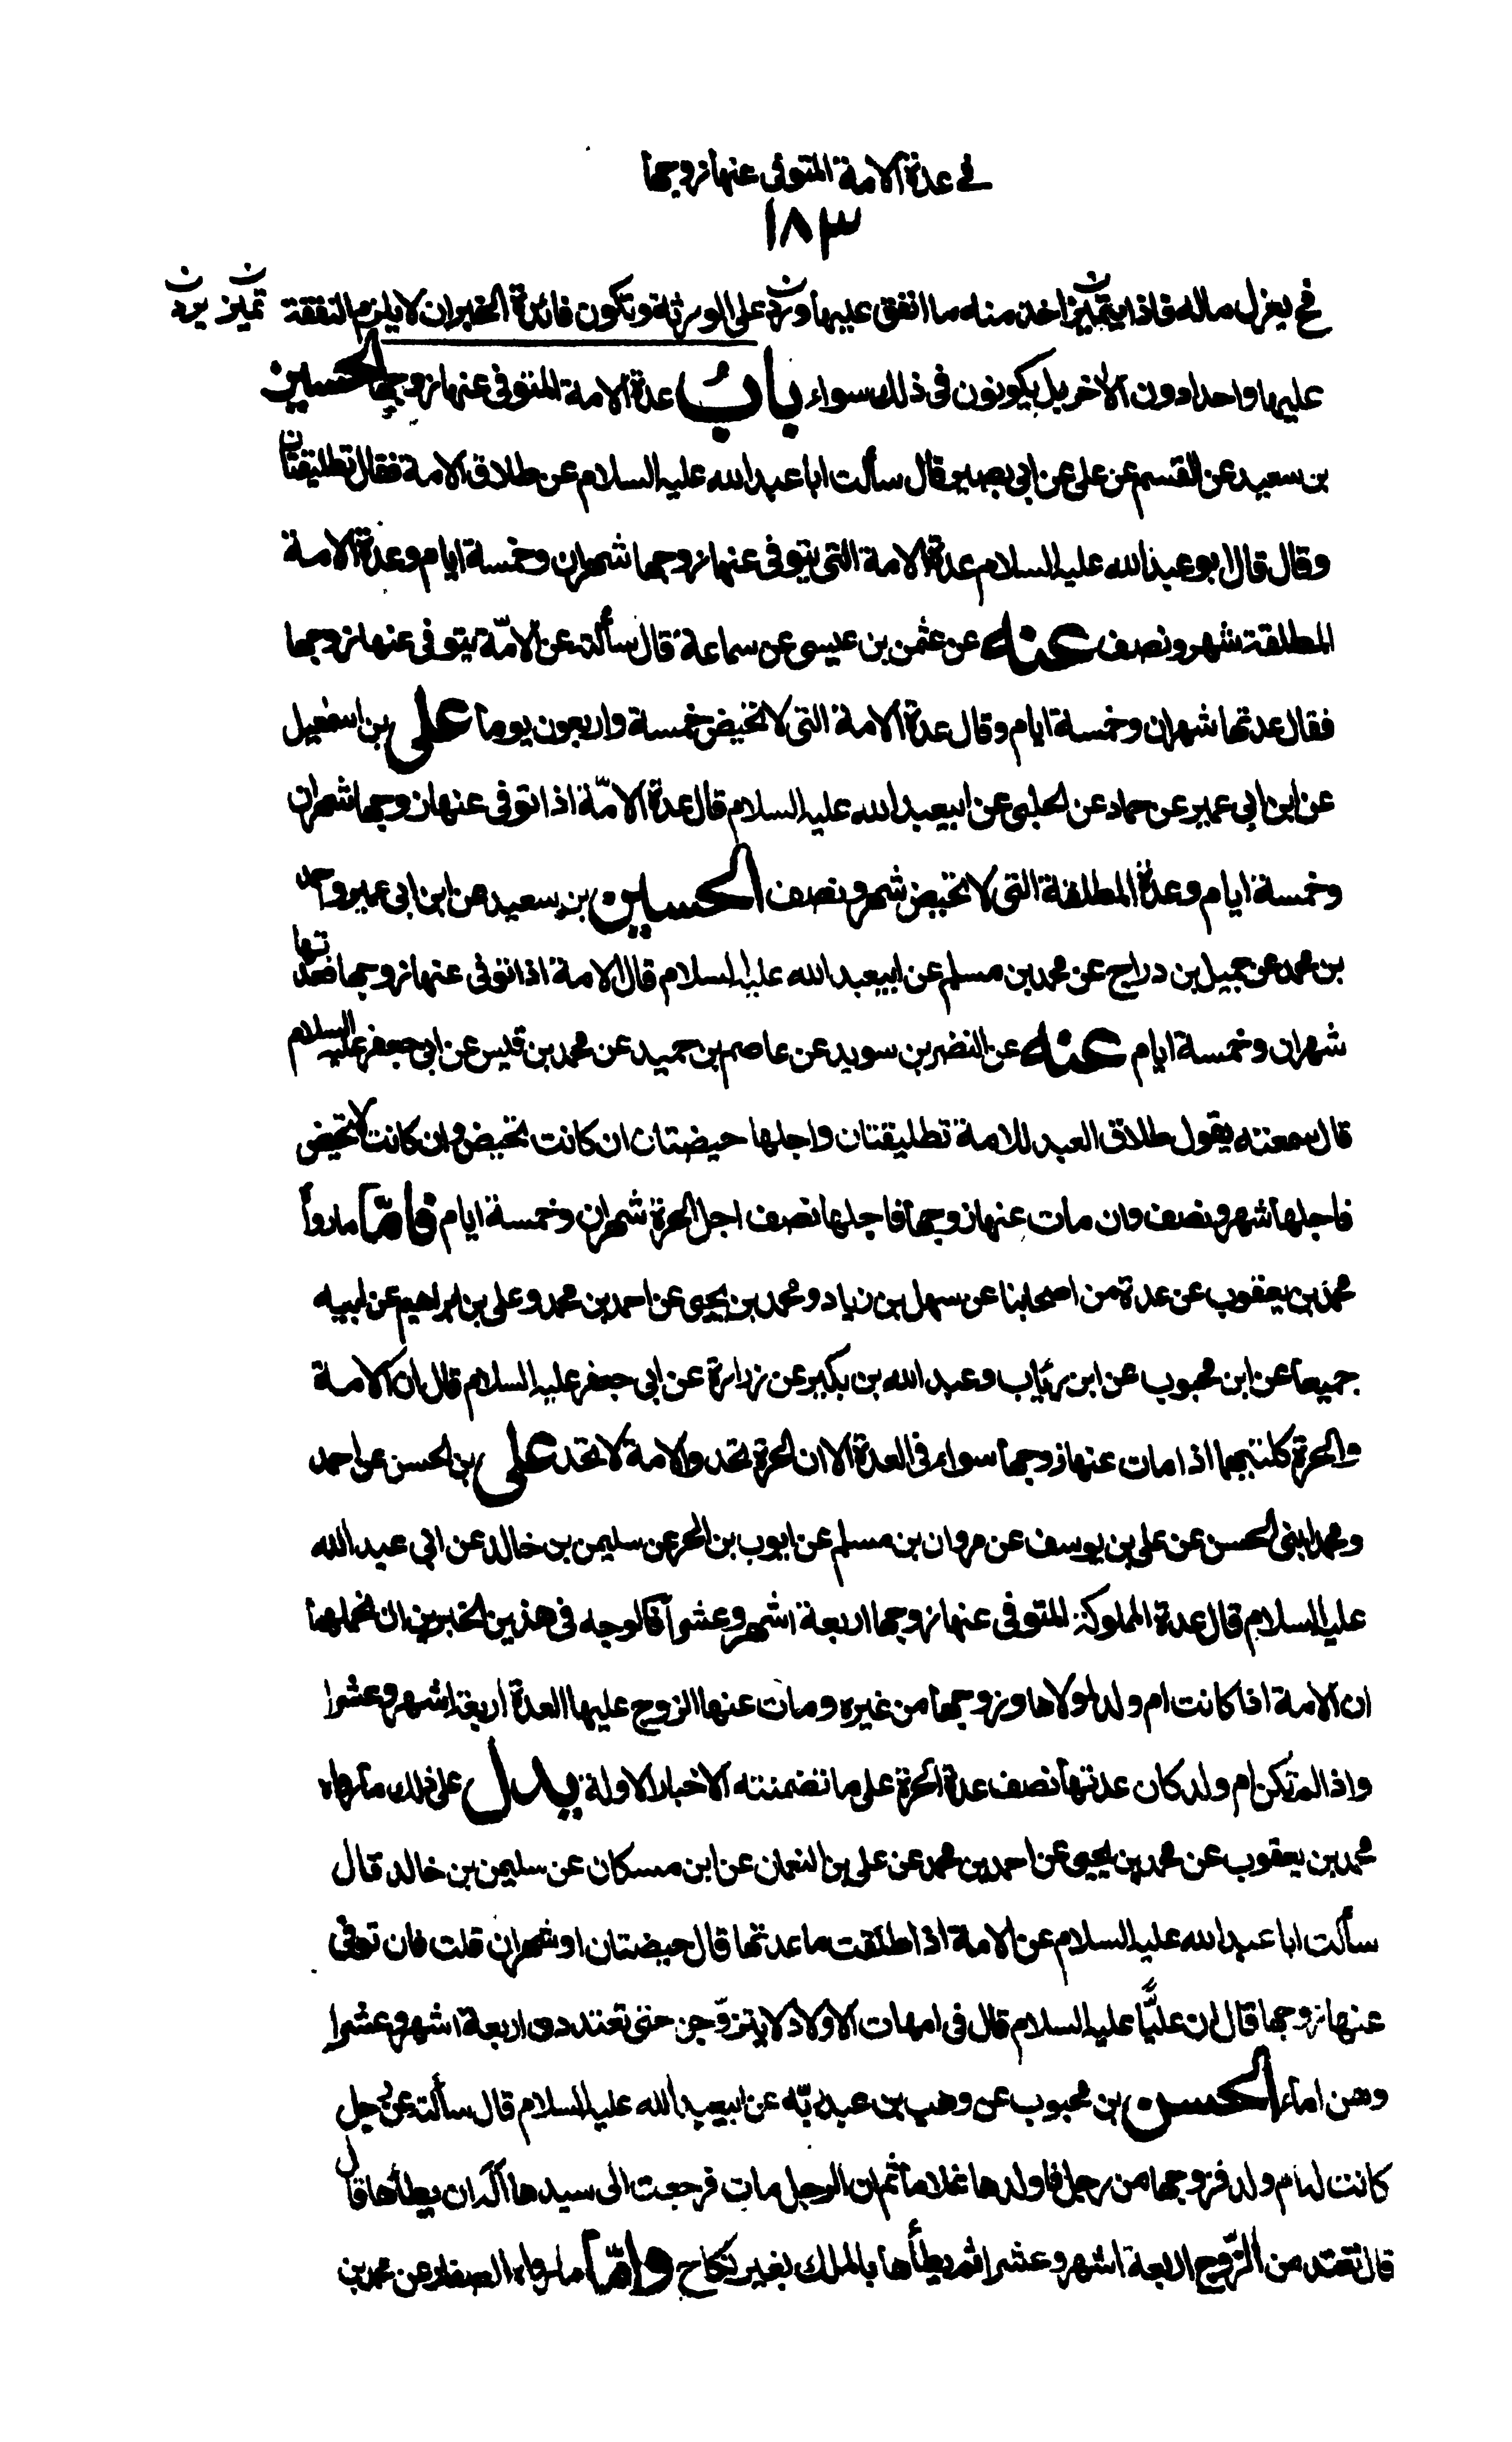 في عدة الامة المتوفى عنها زوجها
١٨٣
ح يعزل ماله فاذا يتميز اخذ منه ما انفق عليها ويرد على الورثة وتكون فائدة الخبر ان لا يلزم النفقة تميز ن يرد ن
عليها واحدا دون الاخر بل يكونون في ذلك سواء باب عدة الامة المتوفى عنها زوجها الحسين
بن سعيد عن القسم عن علي عن ابي بصير قال سألت ابا عبد الله عليه السلام عن طلاق الامة فقال تطليقتان
وقال قال ابو عبد الله عليه السلام عدة الامة التي يتوفى عنها زوجها شهران وخمسة ايام وعدة الامة
المطلقة شهر ونصف عنه عن عثمن بن عيسى عن سماعة قال سألته عن الامّة يتوفى عنها زوجها
فقال عدتها شهران وخمسة ايام وقال عدة الامة التي لا تحيض خمسة واربعون يوما علي بن اسمعيل
عن ابن ابي عمير عن حماد عن الحلبي عن ابيعبد الله عليه السلام قال عدة الامّة اذا توفى عنها زوجها شهران
وخمسة ايام وعدة المطلقة التي لا تحيض شهر ونصف الحسين بن سعيد عن ابن ابي عمير واحمد
بن محمد عن جميل بن دراج عن محمد بن مسلم عن ابيعبد الله عليه السلام قال الامة اذا توفى عنها زوجها فعدتها
شهران وخمسة ايام عنه عن النضر بن سويد عن عاصم بن حميد عن محمد بن قيس عن ابي جعفر عليه السلام
قال سمعته يقول طلاق العبد للامة تطليقتان واجلها حيضتان ان كانت تحيض وان كانت لا تحيض
فاجلها شهر ونصف وان مات عنها زوجها فاجلها نصف اجل الحرة شهران وخمسة ايام فامّا ما رواه
محمد بن يعقوب عن عدة من اصحابنا عن سهل بن زياد ومحمد بن يحيى عن احمد بن محمد وعلي بن ابراهيم عن ابيه
جميعا عن ابن محبوب عن ابن رئاب وعبد الله بن بكير عن زرارة عن ابي جعفر عليه السلام قال ان الامة
والحرة كلتيهما اذا مات عنها زوجها سواء في العدة الا ان الحرة تحد والامة لا تحد علي بن الحسن عن احمد
ومحمد ابني الحسن عن علي بن يوسف عن مروان بن مسلم عن ايوب بن الحر عن سليمن بن خالد عن ابي عبد الله
عليه السلام قال عدة المملوكة المتوفى عنها زوجها اربعة اشهر وعشرا فالوجه في هذين الخبرين ان نحملهما
ان الامة اذا كانت ام ولد لمولاها وزوجها من غيره ومات عنها الزوج عليها العدة اربعة اشهر وعشرا
واذا لم تكن ام ولد كان عدتها نصف عدة الحرة على ما تضمنته الاخبار الاولة يدل على ذلك ما رواه
محمد بن يعقوب عن محمد بن يحيى عن احمد بن محمد عن علي بن النعمان عن ابن مسكان عن سليمن بن خالد قال
سألت ابا عبد الله عليه السلام عن الامة اذا طلقت ما عدتها قال حيضتان او شهران قلت فان توفى
عنها زوجها قال ان عليّا عليه السلام قال في امهات الاولاد لا يتزوّجن حتى تعتددن اربعة اشهر وعشرا
وهن اماء الحسن بن محبوب عن وهب بن عبد ربّه عن ابيعبد الله عليه السلام قال سألته عن رجل
كانت له ام ولد فزوجها من رجل فاولدها غلاما ثم ان الرجل مات فرجعت الى سيدها أله ان يطأها قال
قال تعتد من الزّوج اربعة اشهر وعشرا ثم يطأها بالملك بغير نكاح وامّا ما رواه الصفار عن محمد بن